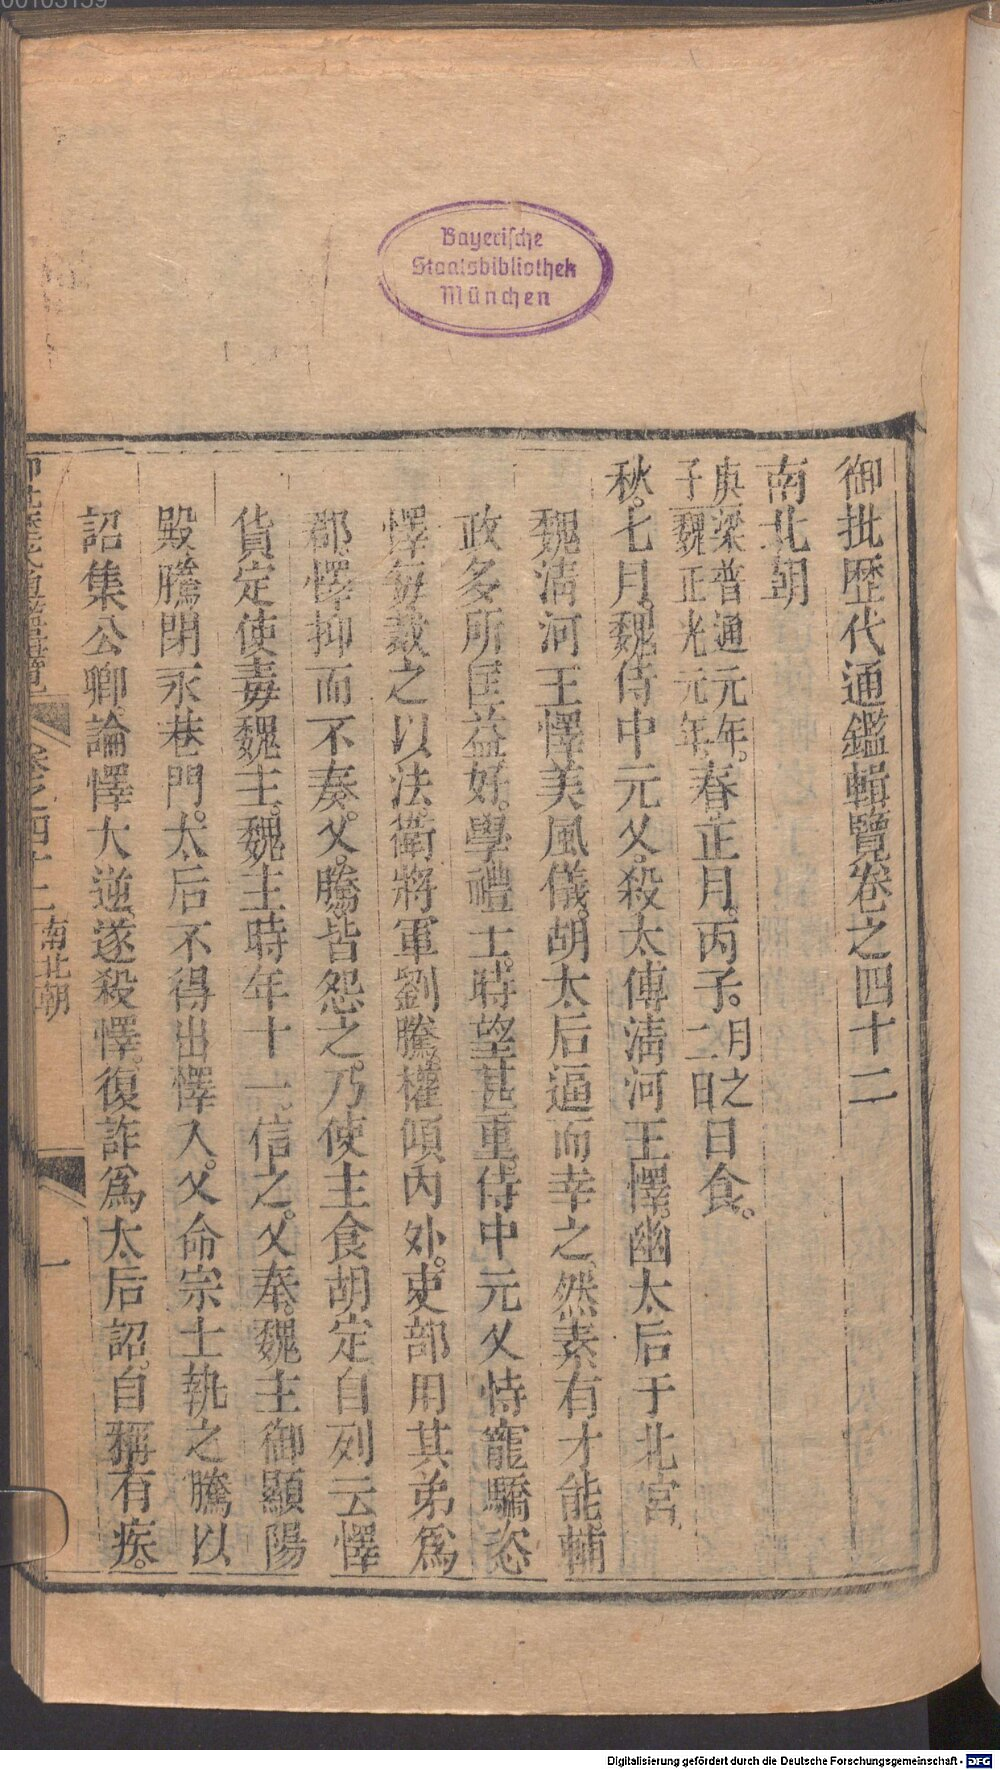 00103159
Bayerische
Staatsbibliothek
München
御批歷代通鑑輯覽卷之四十二
南北朝
庚子梁普通元年。魏正光元年。春正月。丙子。月之二日日食。
秋。七月。魏侍中元乂。殺太傅清河王懌。幽太后于北宮
魏清河王懌美風儀。胡太后逼而幸之、然素有才能。輔
政多所匡益。好。學禮士。時望甚重。侍中元乂恃寵驕恣
懌每裁之以法。衛將軍劉騰。權傾內外。吏部用其弟爲
郡。懌抑而不奏。乂。騰。皆怨之。乃使主食胡定自列云懌
貨定使毒魏主。魏主時年十一。信之。乂奉。魏主御顯陽
殿。騰閉永巷門。太后不得出懌入。乂命宗士執之騰以
詔集公卿。論懌大逆。遂殺懌。復詐爲太后詔。自稱有疾。
御批歷代通鑑輯覽 卷之四十二 南北朝 一
Digitalisierung gefördert durch die Deutsche Forschungsgemeinschaft - DFG